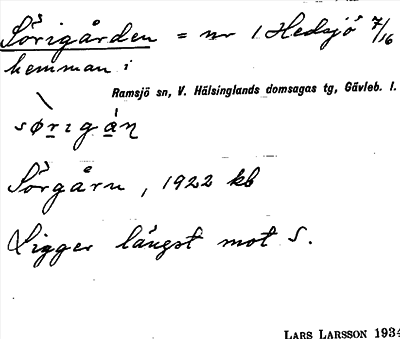 Sörigården = nr 1 Hedsjö 7/16
hemman i
Ramsjö sn, V. Hälsinglands domsagas tg, Gävleb. l.
sørigàn
Sörgårn, 1922 kb
Ligger längst mot S.
LARS LARSSON 1934